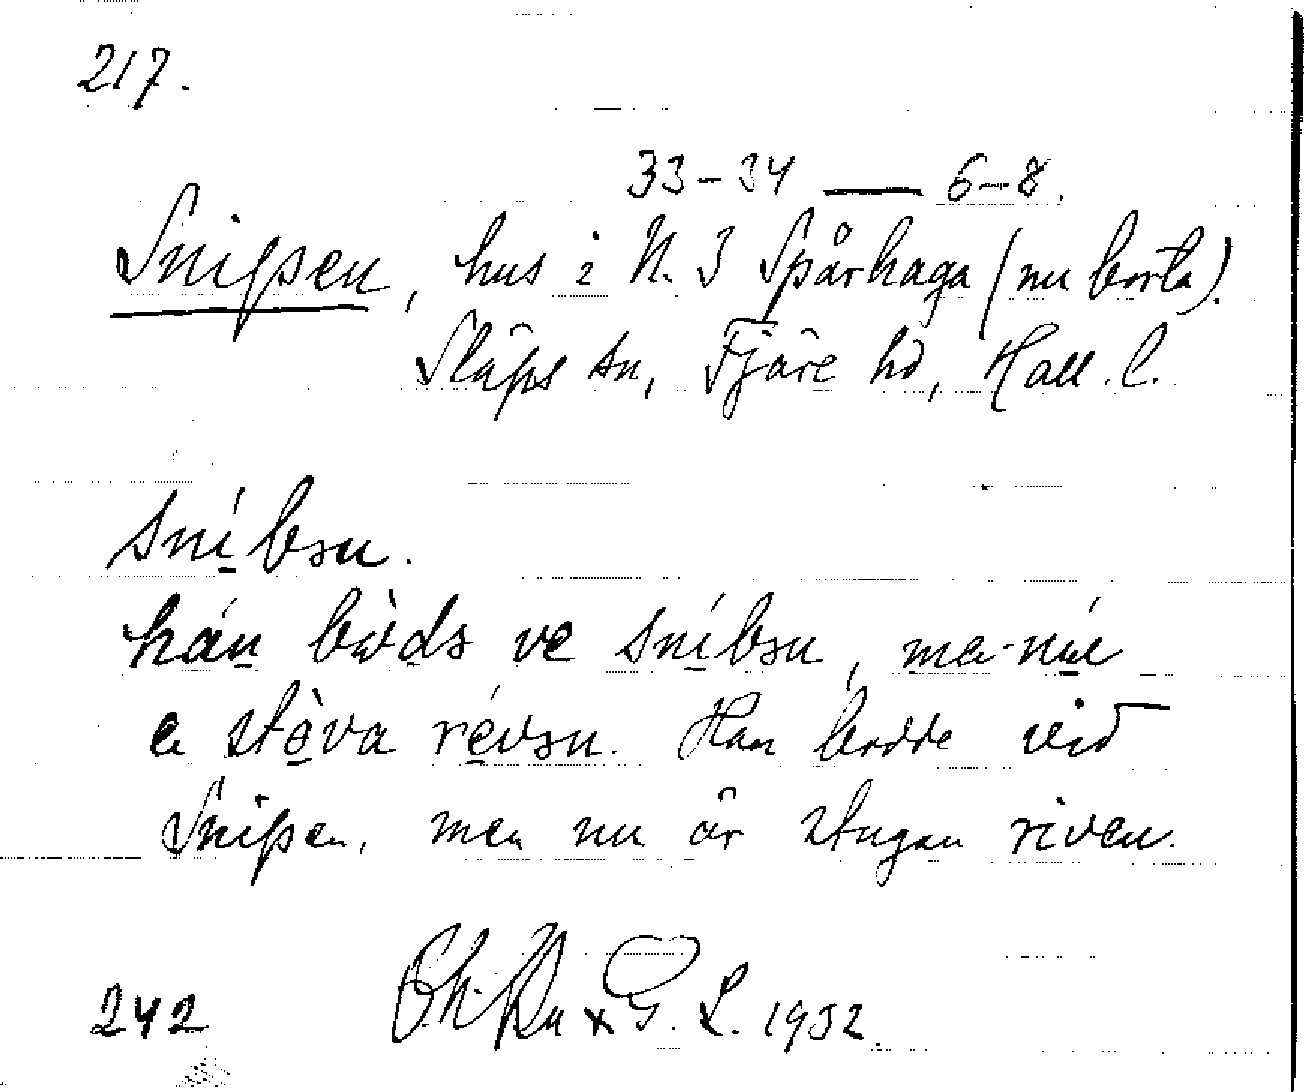 217.
33-34 — 6-8.
Snipen, hus i N. 3 Spårhaga (nu borta).
Släps sn, Fjäre hd, Hall. l.
sníbǝn.
hán ve sníbǝn, me-
a stòva révǝn. Han bodde vid
Snipen, men nu är stugan riven.
242 G. L. 1932.